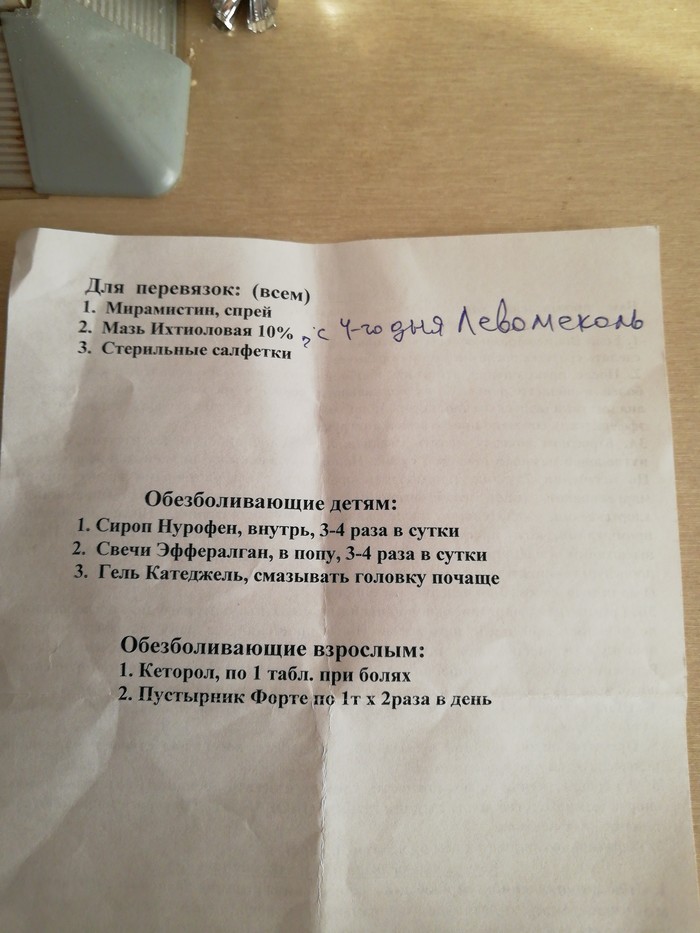 Для перевязок: (всем)
1. Мирамистин, спрей
2. Мазь Ихтиоловая 10% с 4-го дня Левомеколь
3. Стерильные салфетки
Обезболивающие детям:
1. Сироп Нурофен, внутрь, 3-4 раза в сутки
2. Свечи Эффералган, в попу, 3-4 раза в сутки
3. Гель Катеджель, смазывать головку почаще
Обезболивающие взрослым:
1. Кеторол, по 1 табл. при болях
2. Пустырник Форте по 1т х 2раза в день